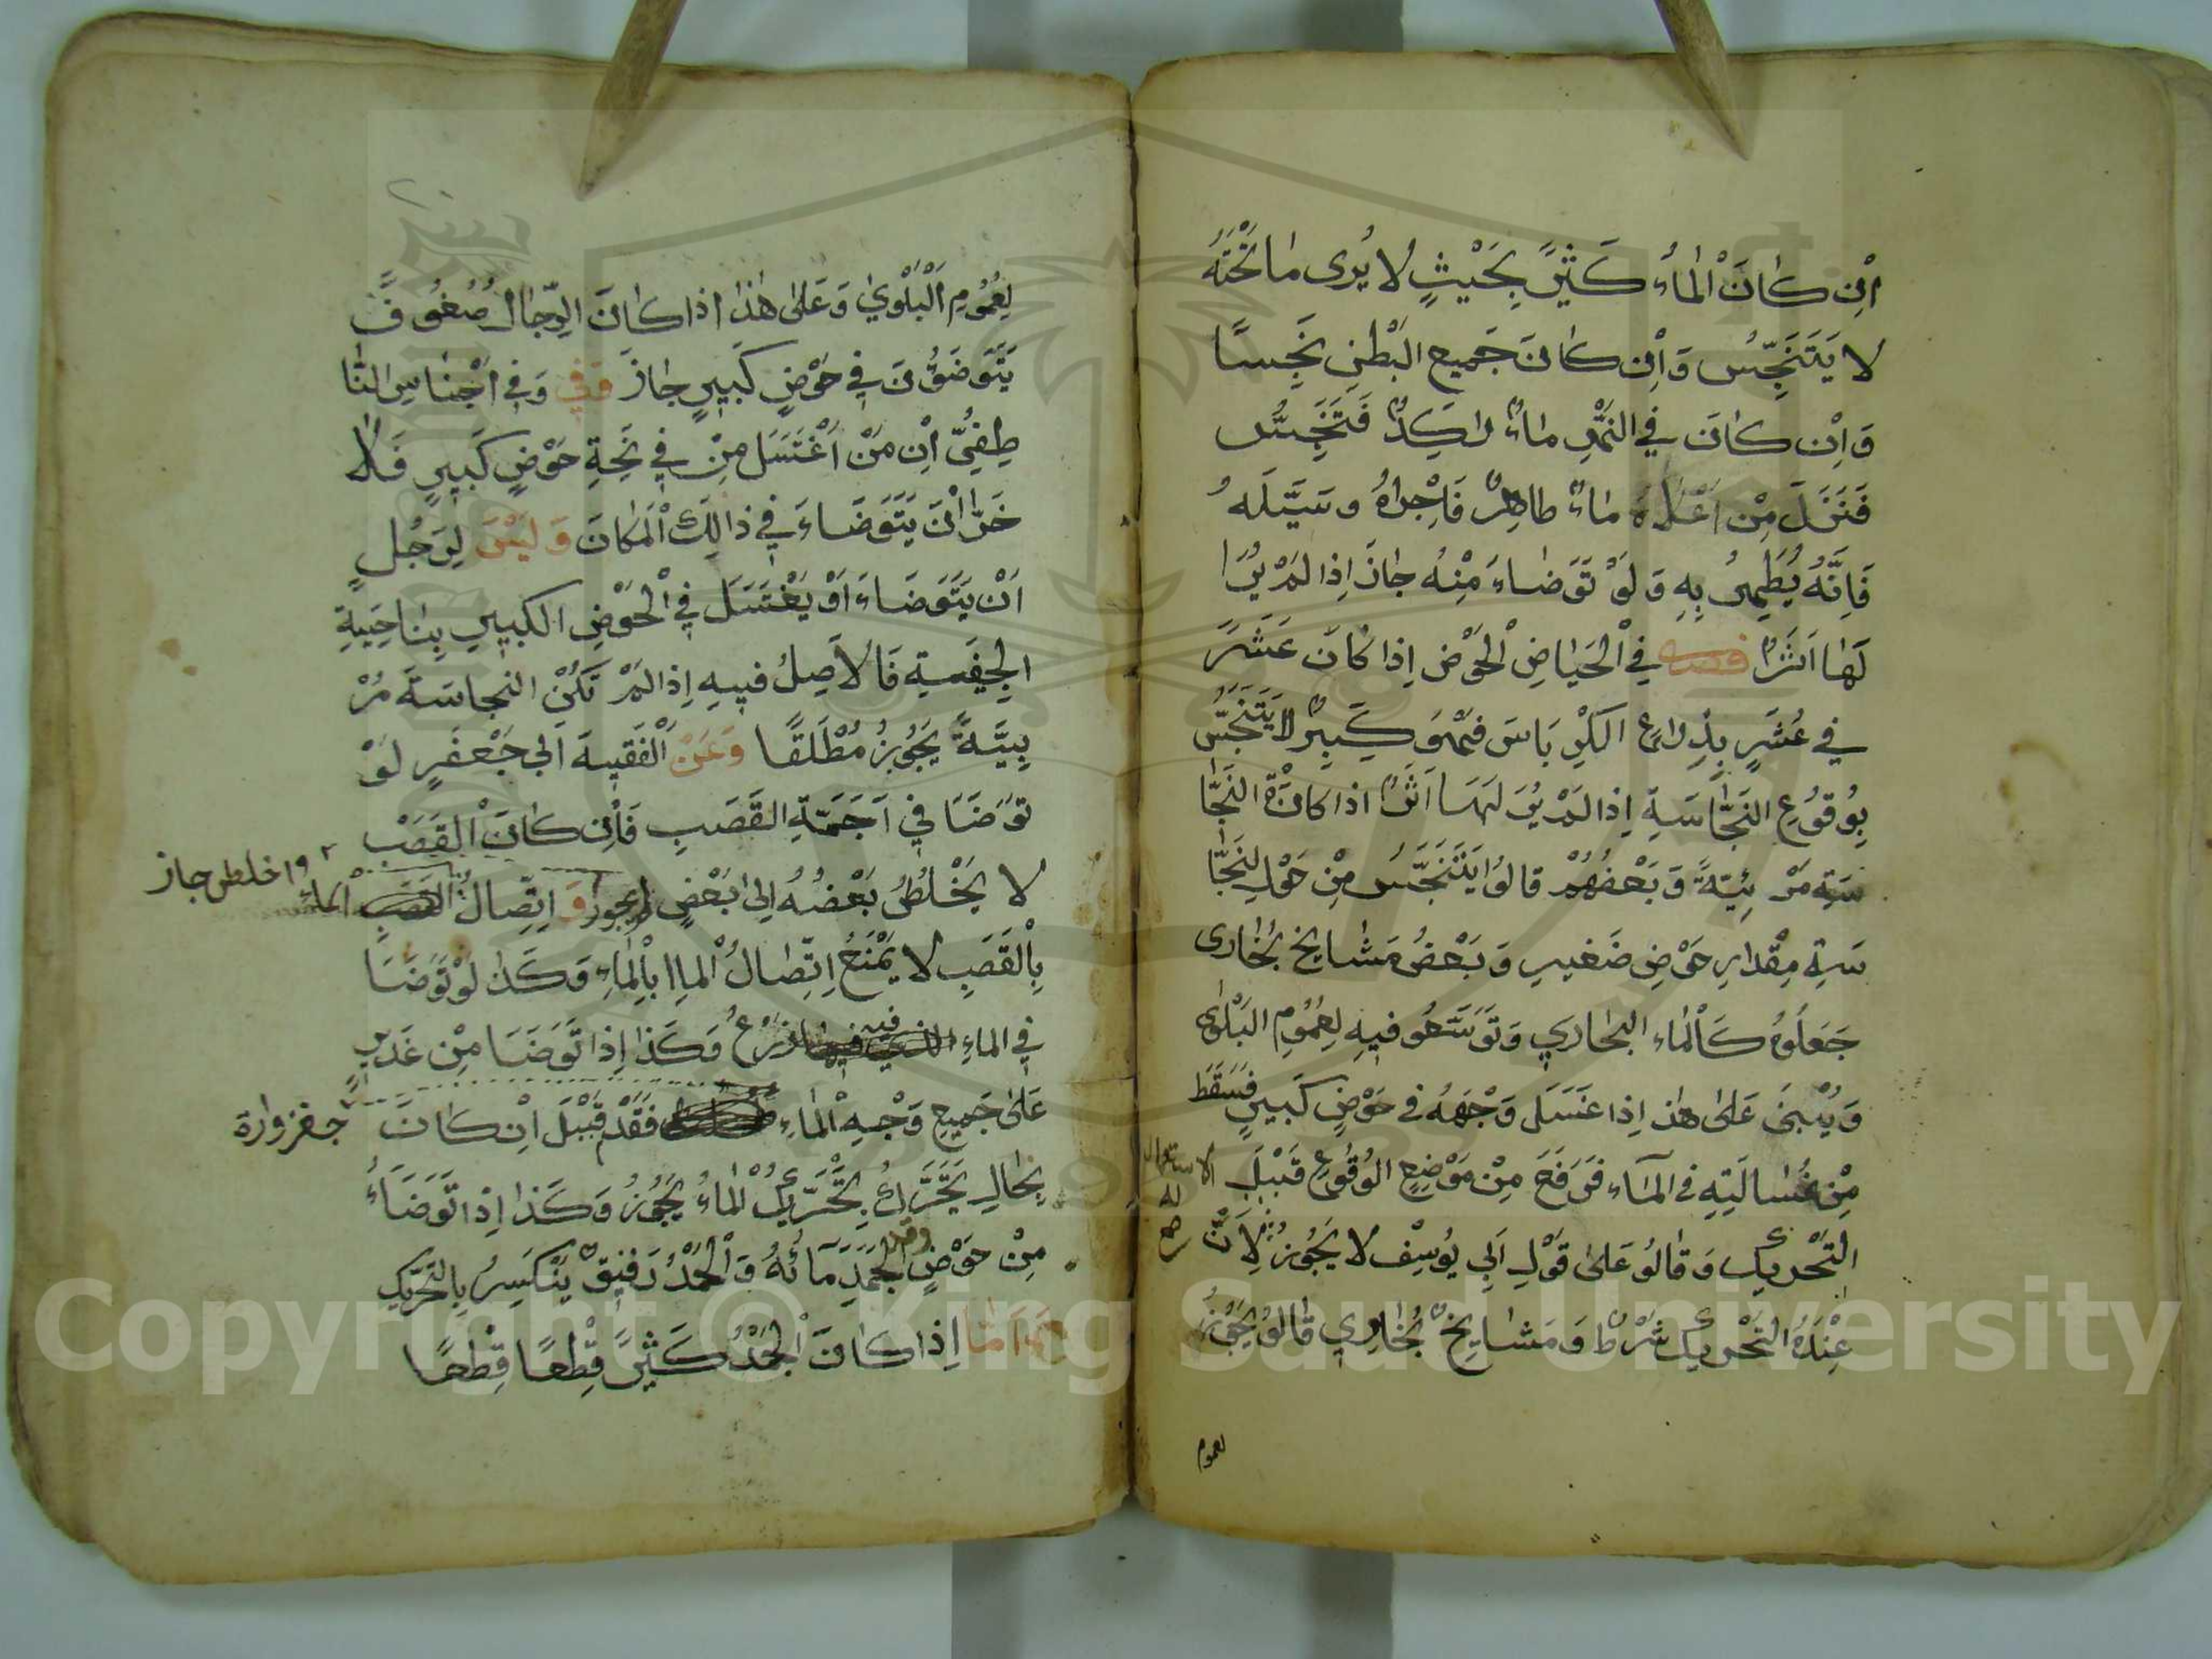 اِنْ كَانَ الْمَاءُ كَثِيرً بِحَيْثٍ لا يُرى مَا تَحْتَهُ
لا يَتَنَجِّسُ وَاِنْ كَانَ جَمِيع البَطْنِ نَجِسًا
وَاِنْ كَانَ فِي النَّهْرِ مَاءٌ رَاكِدٌ فَتَنَجِسُ
فَنَزَلَ مِنْ اَعْلَاهُ مَاءٌ طَاهِرٌ فَاَجْرَاهُ وسَيَّلَهُ
فَاِنَّهُ يُطَهِرُ بِهِ وَلَوْ تَوَضَاءَ مِنْهُ جَازَ اِذا لَمْ يُرَا
لَهَا اَثَرٌ فصل فِي الْحَيَاضِ الْحَوْضِ اِذا كَانَ عَشَرَ
فِي عَشَرٍ بِذِرَاعِ الكِرْبَاسَ فَهُوَ كَبِيرٌ لا يَتَنَجَّسُ
بِوُقُوْعِ النَجَّاسَةِ اِذا لَمْ يُرَ لَهَا اَثَرٌ اذا كانَةْ النَجَّا
سَةِ مَرْئِيَّةً وَبَعْضُهُمْ قالوُا يَتَنَجَّسُ مِنْ حَوْلِ النَجَّا
سَةِ مِقْدارِ حَوْضِ صَغيرِ وَبَعْضُ مَشَايِخ بُخَارى
جَعَلُوهُ كَالْمَاء الجَارِي وَتَوَسَّعُو فيهِ لِعُمُوْمِ البَلْوٰى
وَيُبْنىَ عَلىٰ هٰذا اِذا غَسَلَ وَجْهَهُ فى حَوْضٍ كَبيرٍ فَسَقَطَ
مِنْ غُسَالَتِهِ فى الْمَاءِ فَرَفَعَ مِنْ مَوْضِعِ الوُقُوْعِ قَبْلَ
التَحْرِيكِ وَقَالُوُ عَلىٰ قَوْلِ اَبِي يُوسِفْ لا يَجُوزُ لِاَنَّ
عِنْدَهُ التَحْرِيكَ شَرْطٌ وَمَشَايِخٌ بُخَارِي قَالُوُ يَجُوْزُ
لعموم
لِعُمُوْمِ الْبَلْوٰي وَعَلىٰ هٰذا اذا كَانَ الرِّجَالُ صُفُوُفً
يَتَوَضَؤُنَ فِي حَوْضٍ كَبِيرٍ جَازَ وَفِي وَفِي اَجْنَاسِ النَّا
طِفِيُّ اِنْ مَنْ اَغْتَسَلَ مِنْ فِي نَحِةِ حَوْضٍ كَبِيرٍ فَلَا
خَرَ اَنْ يَتَوَضَاءَ فِي ذالِكَ الْمَكَانَ وَلَيْسَ لِرَجُلٍ
اَنْ يَتَوَضَاءَ اَوْ يَغْتَسَلَ فِي الْحَوْضِ الكَبيرِ بِنَاحِيَةِ
الْجِيفَةِ فَالاَصِلُ فيهِ اِذا لَمْ تَكُنْ النجاسَةَ مَرْ
ئِيَّةً يَجُوزُ مُطْلَقًا وَعَنْ الْفَقيهَ اَبى جَعْفَرٍ لَوْ
تَوَضَا فِي اَجَمَةِ القَصَبِ فَاِنْ كَانَ القَصَبْ
لا يَخْلُطُ بَعْضُهُ اِلىٰ بَعْضٍ وَاِتِّصَال القصب الماء واخلطى جاز
بِالْقَصَبِ لا يَمْنَعُ اِتِّصَالُ الْمَاِ بِالْمَاءِ وَكَذا لَوْتَوَضَا
فِي الماءِ الذي فيه زَرْعٌ وَكَذا اِذا تَوَضَا مِنْ غَدِيرٍ
عَلىٰ جَميعِ وَجْهِ الْمَاءِ فَقَدْ قَبْلَ اِنْ كَانَ جغزواره
بِحَالٍ يَتَحَرَّكُ بِتَحَرُّيكِ الْمَاءُ يَجُوْزُ وَكَذا اِذا تَوَضَاءُ
مِنْ حَوْضٍ وقد الجَمَدِ مَائُهُ وَالْجَمْدُ رَقيقٌ يَنْكَسِرُ بِالتَحْرِيكِ
وَاَمَّا اِذا كَانَ الْجَمْدُ كَثِيرً قِطْعًا قِطْعًا